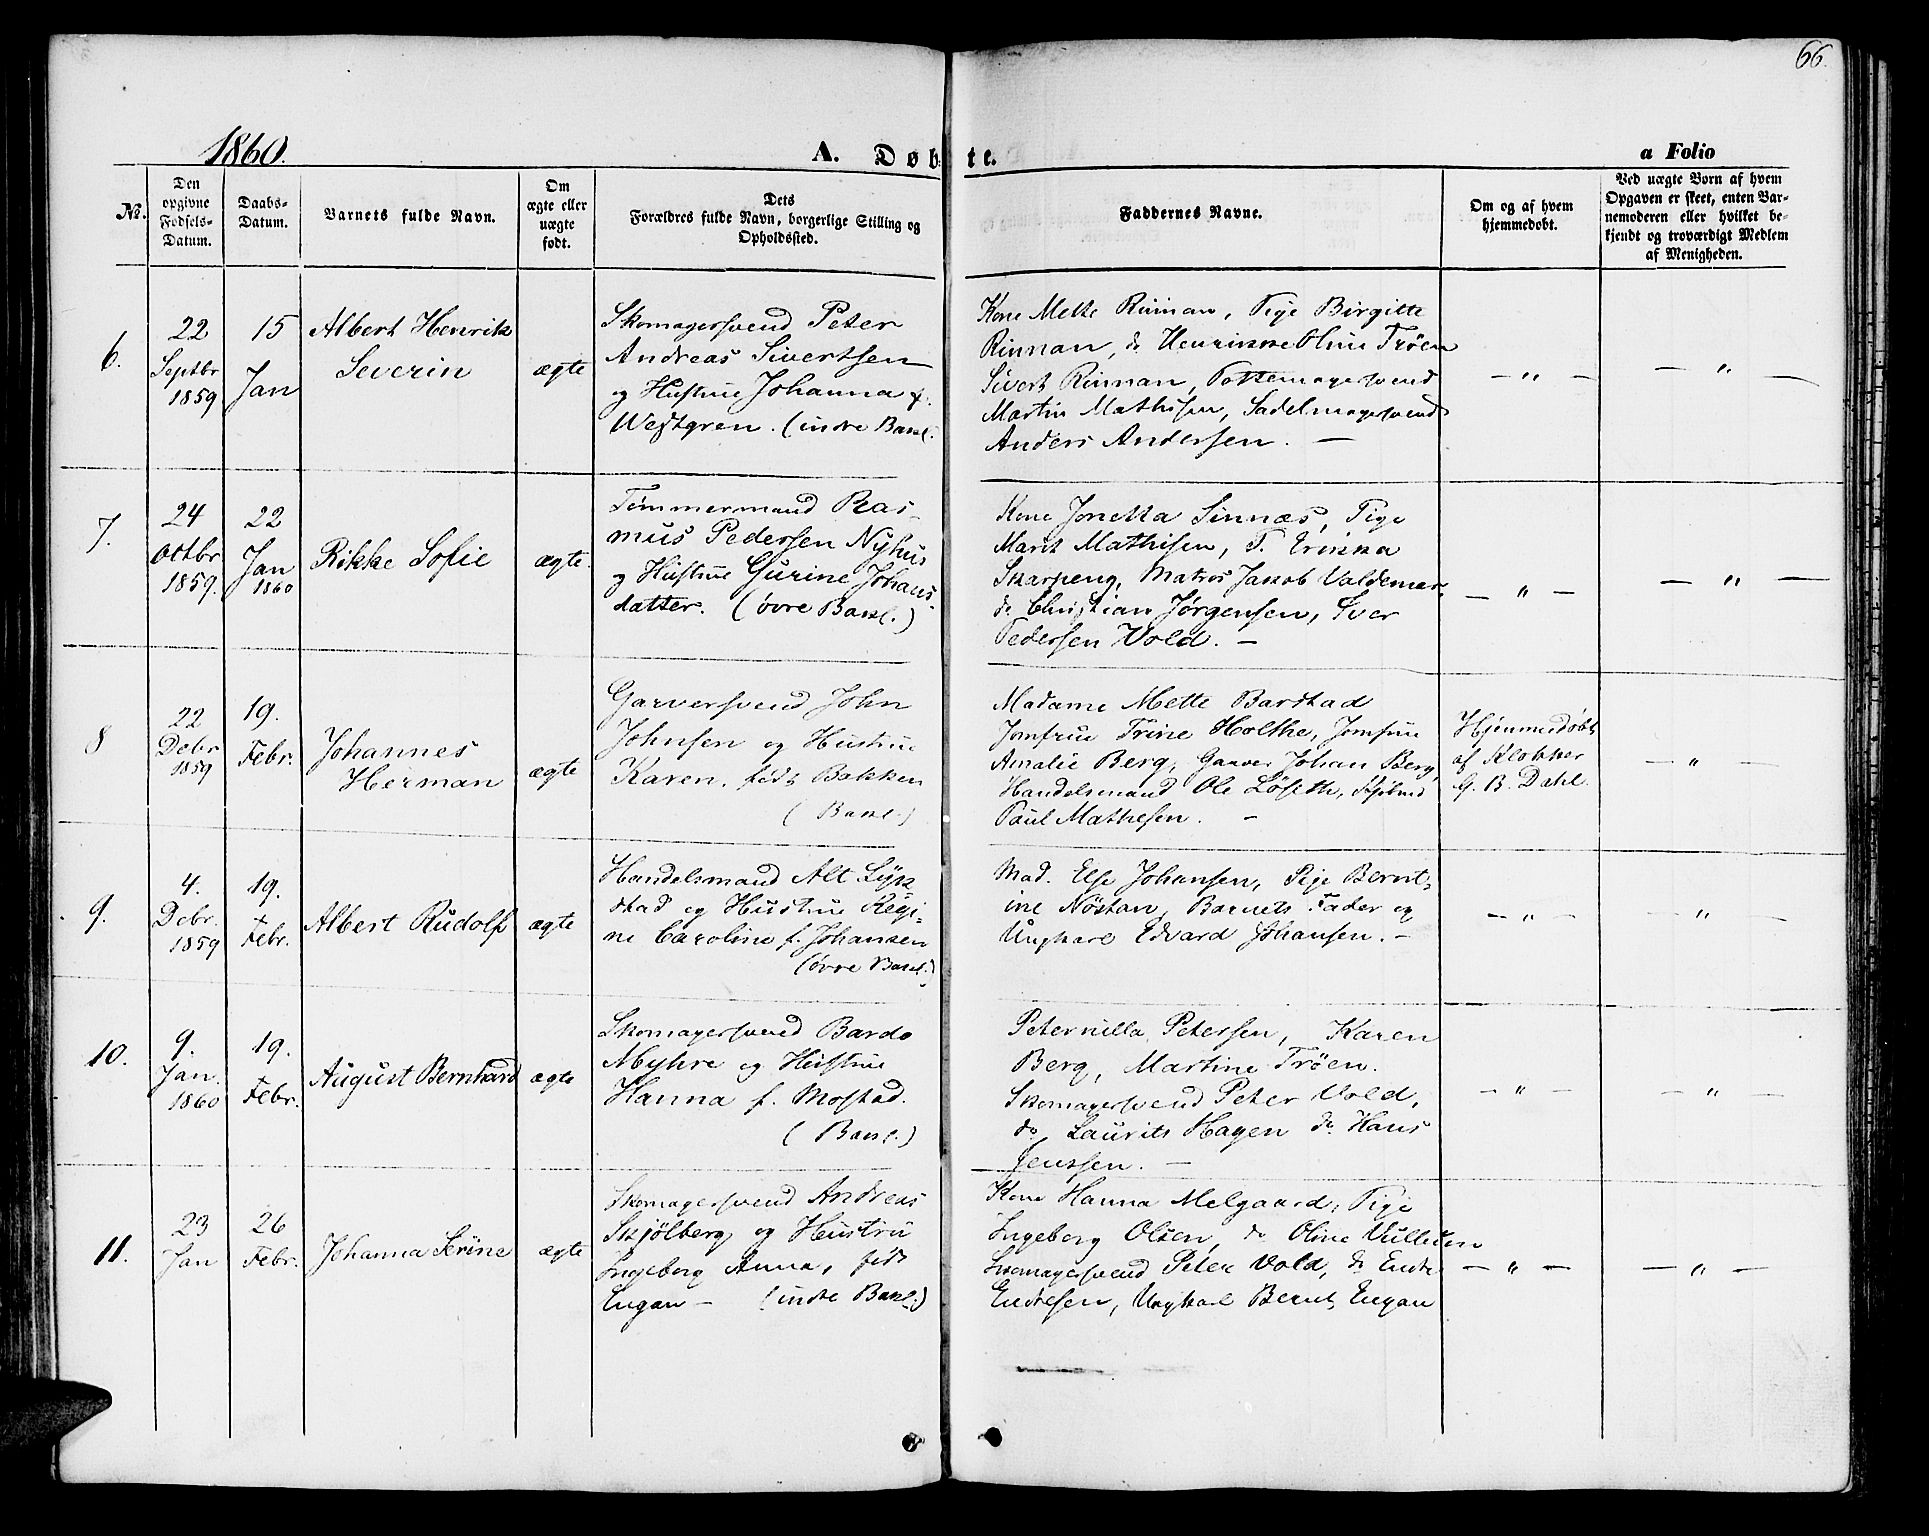 66.
1860.
A. Døbte.
a Folio
No.
Den opgivne Fødsels-Datum.
Daabs-Datum.
Barnets fulde Navn.
Om ægte eller uægte født.
Dets Forældres fulde Navn, borgerlige Stilling og Opholdssted.
Faddernes Navne.
Om og af hvem hjemmedøbt.
Ved uægte Børn af hvem Opgaven er skeet, enten Barnemoderen eller hvilket bekjendt og troværdigt Medlem af Menigheden.
6.
22 Septbr 1859
15 Jan
Albert Henrik
Severin
ægte
Skomagersvend Peter
Andreas Sivertsen
og Hustrue Johanna f.
Westgren. (indre Bakl.
Kone Mette Rinnan, Pige Birgitte
Rinnan, do Henrikke Oline Trøen
Sivert Rinnan, Pottemagersvend
Martin Mathisen, Sadelmagersvend
Anders Andersen. —
— " —
— " —
7.
24 Octbr 1859.
22 Jan 1860
Rikke Sofie
ægte.
Tømmermand Ras-
mus Pedersen Nyhus
og Hustrue Gurine Johans-
datter. (øvre Bakl.)
Kone Jonetta Sinnæs, Pige
Marit Mathisen, P.
Skarpeng, Matros Jakob Valdemar,
do Christian Jørgensen, Iver
Pedersen Vold. —
— " —
— " —
8
22 Debr 1859
19. Febr.
Johannes
Herman
ægte
Garversvend John
Johnsen og Hustrue
Karen, født Bakken
(Bakl.)
Madame Mette Barstad
Jomfrue Trine Holthe, Jomfrue
Amalie Berg, Garver Johan Berg,
Handelsmand Ole Løseth,
Paul Mathesen. —
Hjemmedøbt
af Klokker
G. B. Dahl.
— " —
9.
4. Debr. 1859
19. Febr.
Albert Rudolf
ægte
Handelsmand Alt Lyk-
stad og Hustrue Regi-
ne Caroline f. Johansen
(øvre Bakl.)
Mad. Else Johansen, Pige Bernt-
ine Nøstan, Barnets Fader og
Ungkarl Edvard Johansen. —
— " —
— " —
10.
9. Jan. 1860
19. Febr.
August Bernhard
ægte
Skomagersvend Bardo
Myhre og Hustrue
Hanna f. Mostad.
(Bakl.)
Peternilla Petersen, Karen
Berg, Martine Trøen.
Skomagersvend Peter Vold,
do Laurits Hagen do Hans
Jenssen. —
— " —
— " —
11.
23 Jan
26 Febr.
Johanna Serine
ægte
Skomagersvend Andreas
Skjølberg og Hustru
Ingeborg Anna, født
Engan — (indre Bakl.)
Kone Hanna Melgaard, Pige
Ingeborg Olsen, do Oline
Skomagersvend Peter Vold, do Endre
Endresen, Ungkarl Bernt Engan
— " —
— " —